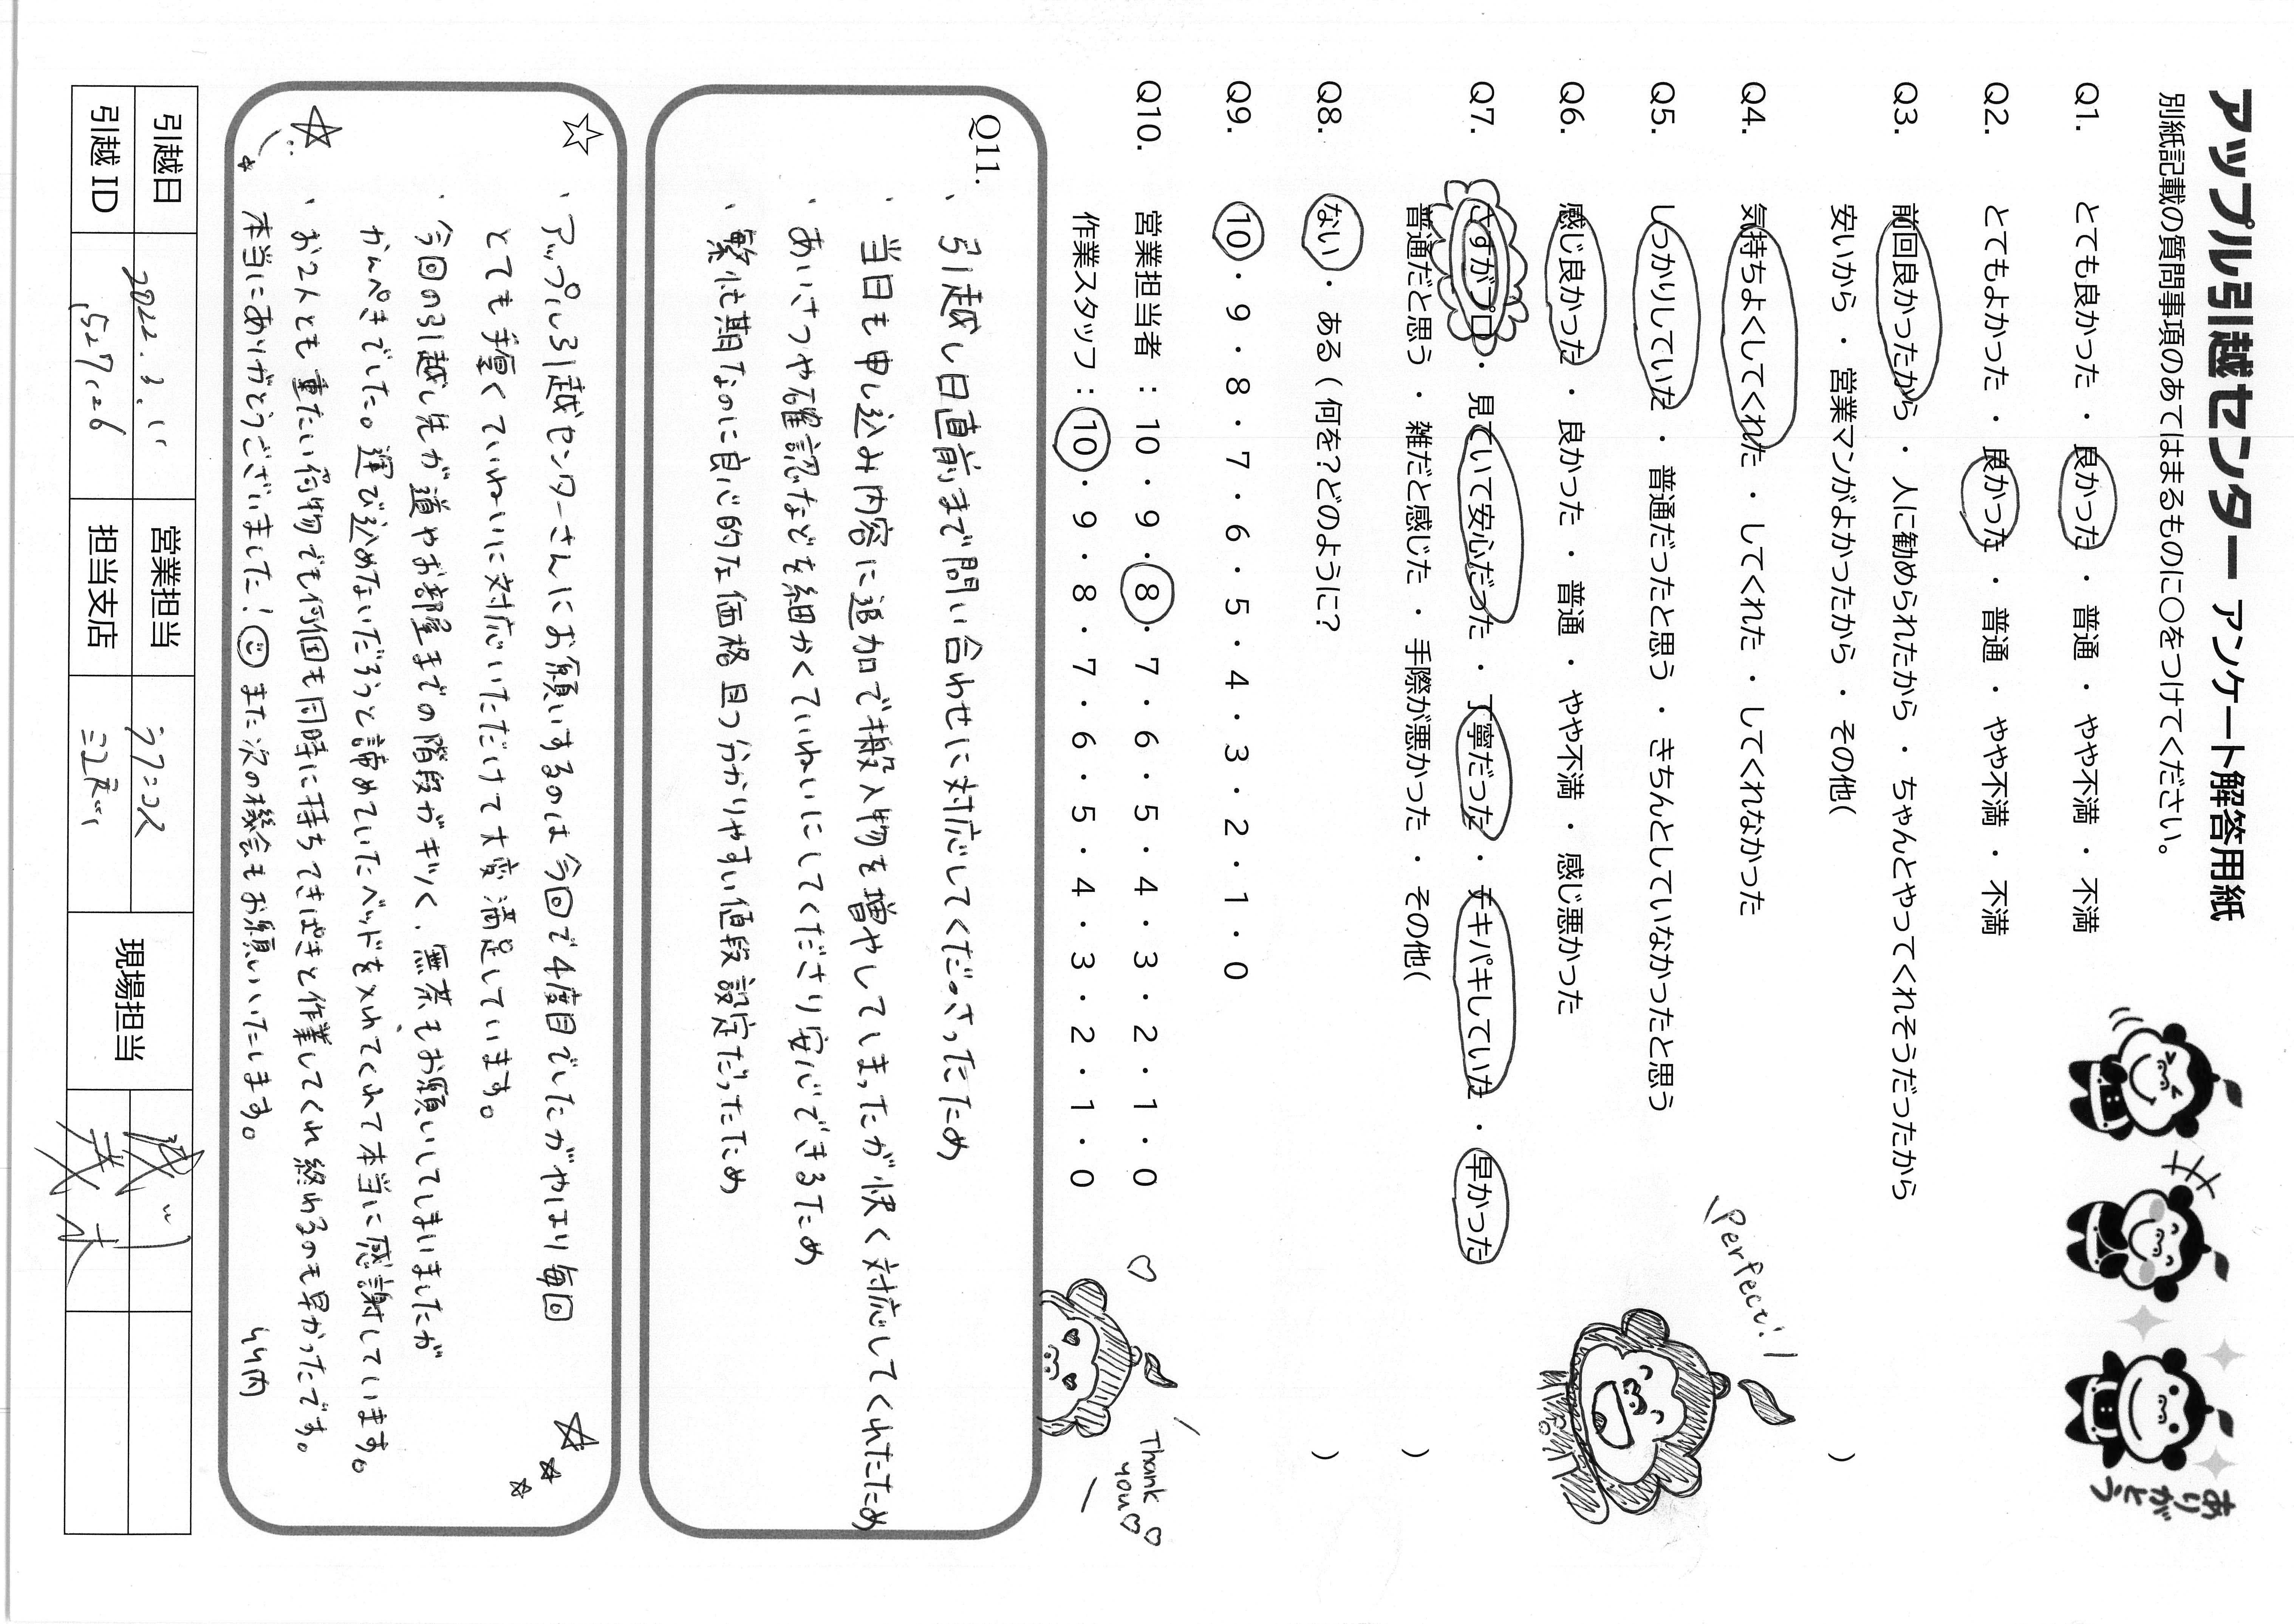 アップル引越センター アンケート解答用紙
別紙記載の質問事項のあてはまるものに○をつけてください。
ありがとう
Q1. とても良かった ・ 良かった ・ 普通 ・ やや不満 ・ 不満
Q2. とてもよかった ・ 良かった ・ 普通 ・ やや不満 ・ 不満
Q3. 前回良かったから ・ 人に勧められたから ・ ちゃんとやってくれそうだったから
安いから ・ 営業マンがよかったから ・ その他( )
Q4. 気持ちよくしてくれた ・ してくれた ・ してくれなかった
Perfect!
Q5. しっかりしていた ・ 普通だったと思う ・ きちんとしていなかったと思う
Q6. 感じ良かった ・ 良かった ・ 普通 ・ やや不満 ・ 感じ悪かった
Q7. さすがプロ ・ 見ていて安心だった ・ 丁寧だった ・ テキパキしていた ・ 早かった
普通だと思う ・ 雑だと感じた ・ 手際が悪かった ・ その他( )
Q8. ない ・ ある ( 何を?どのように? )
Q9. 10 ・ 9 ・ 8 ・ 7 ・ 6 ・ 5 ・ 4 ・ 3 ・ 2 ・ 1 ・ 0
Q10. 営業担当者 : 10 ・ 9 ・ 8 ・ 7 ・ 6 ・ 5 ・ 4 ・ 3 ・ 2 ・ 1 ・ 0 ♡
作業スタッフ : 10 ・ 9 ・ 8 ・ 7 ・ 6 ・ 5 ・ 4 ・ 3 ・ 2 ・ 1 ・ 0
Thank ♡
you♡
Q11.
・引越し日直前まで問い合わせに対応してくださったため
・当日も申し込み内容に追加で搬入物を増やしてしまったが快く対応してくれたため
・あいさつや確認などを細かくていねいにしてくださり安心できるため
・繁忙期なのに良心的な価格且つ分かりやすい値段設定だったため
☆ ・アップル引越センターさんにお願いするのは今回で4度目でしたがやはり毎回
とても手厚くていねいに対応いただけて大変満足しています。
・今回の引越し先が道やお部屋までの階段がキツく、無茶もお願いしてしまいましたが
かんぺきでした。運び込めないだろうと諦めていたベッドを入れてくれて本当に感謝しています。
☆ ・お2人とも重たい荷物でも何個も同時に持ちてきぱきと作業してくれ終わるのも早かったです。
本当にありがとうございました! また次の機会もお願いいたします。
引越日 2022.3.11 営業担当 現場担当
引越 ID 担当支店